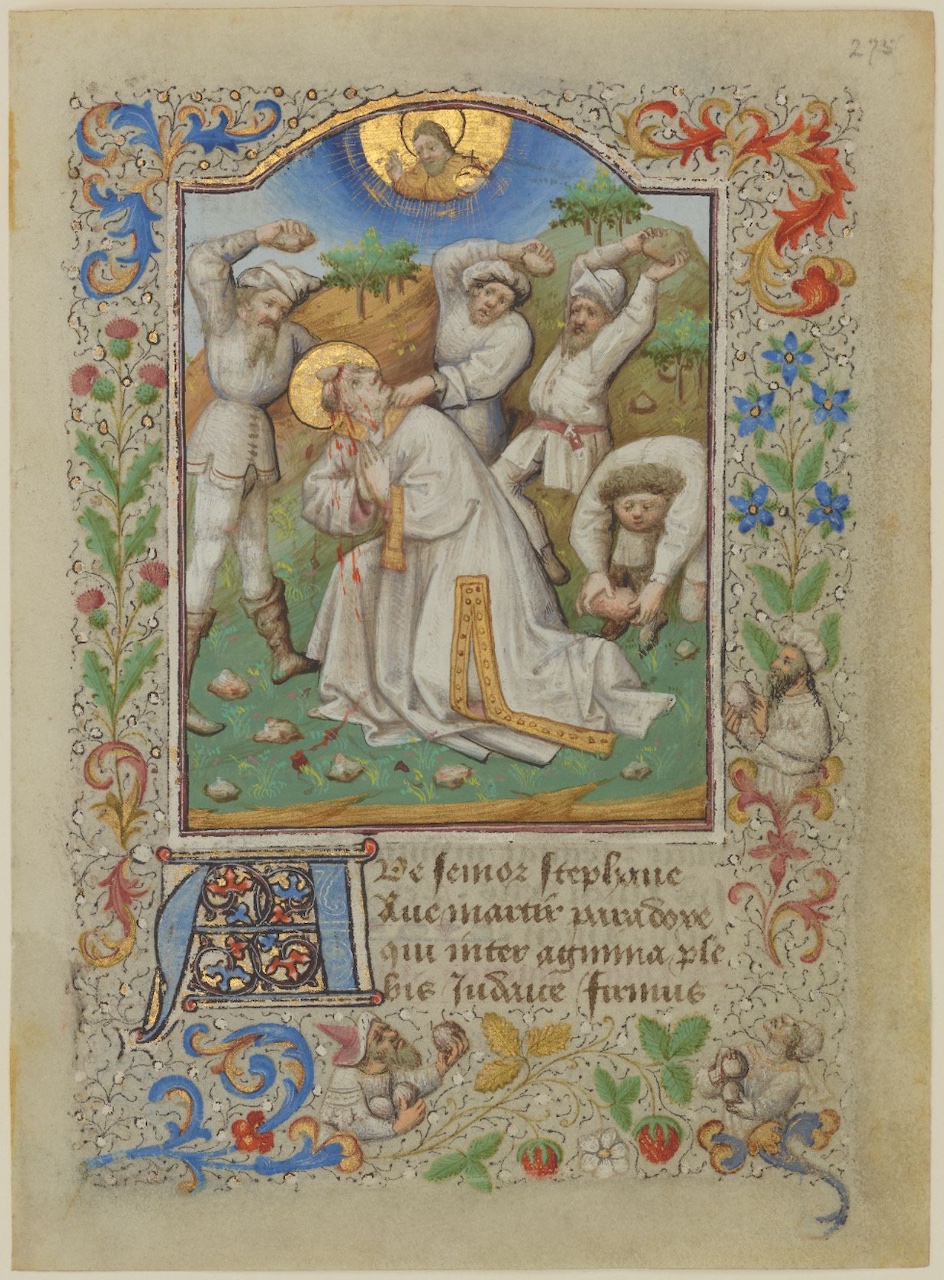 275
AVe semor stephane
Aue martir paradoxe
qui inter agmina ple
bis Iudaice firmus